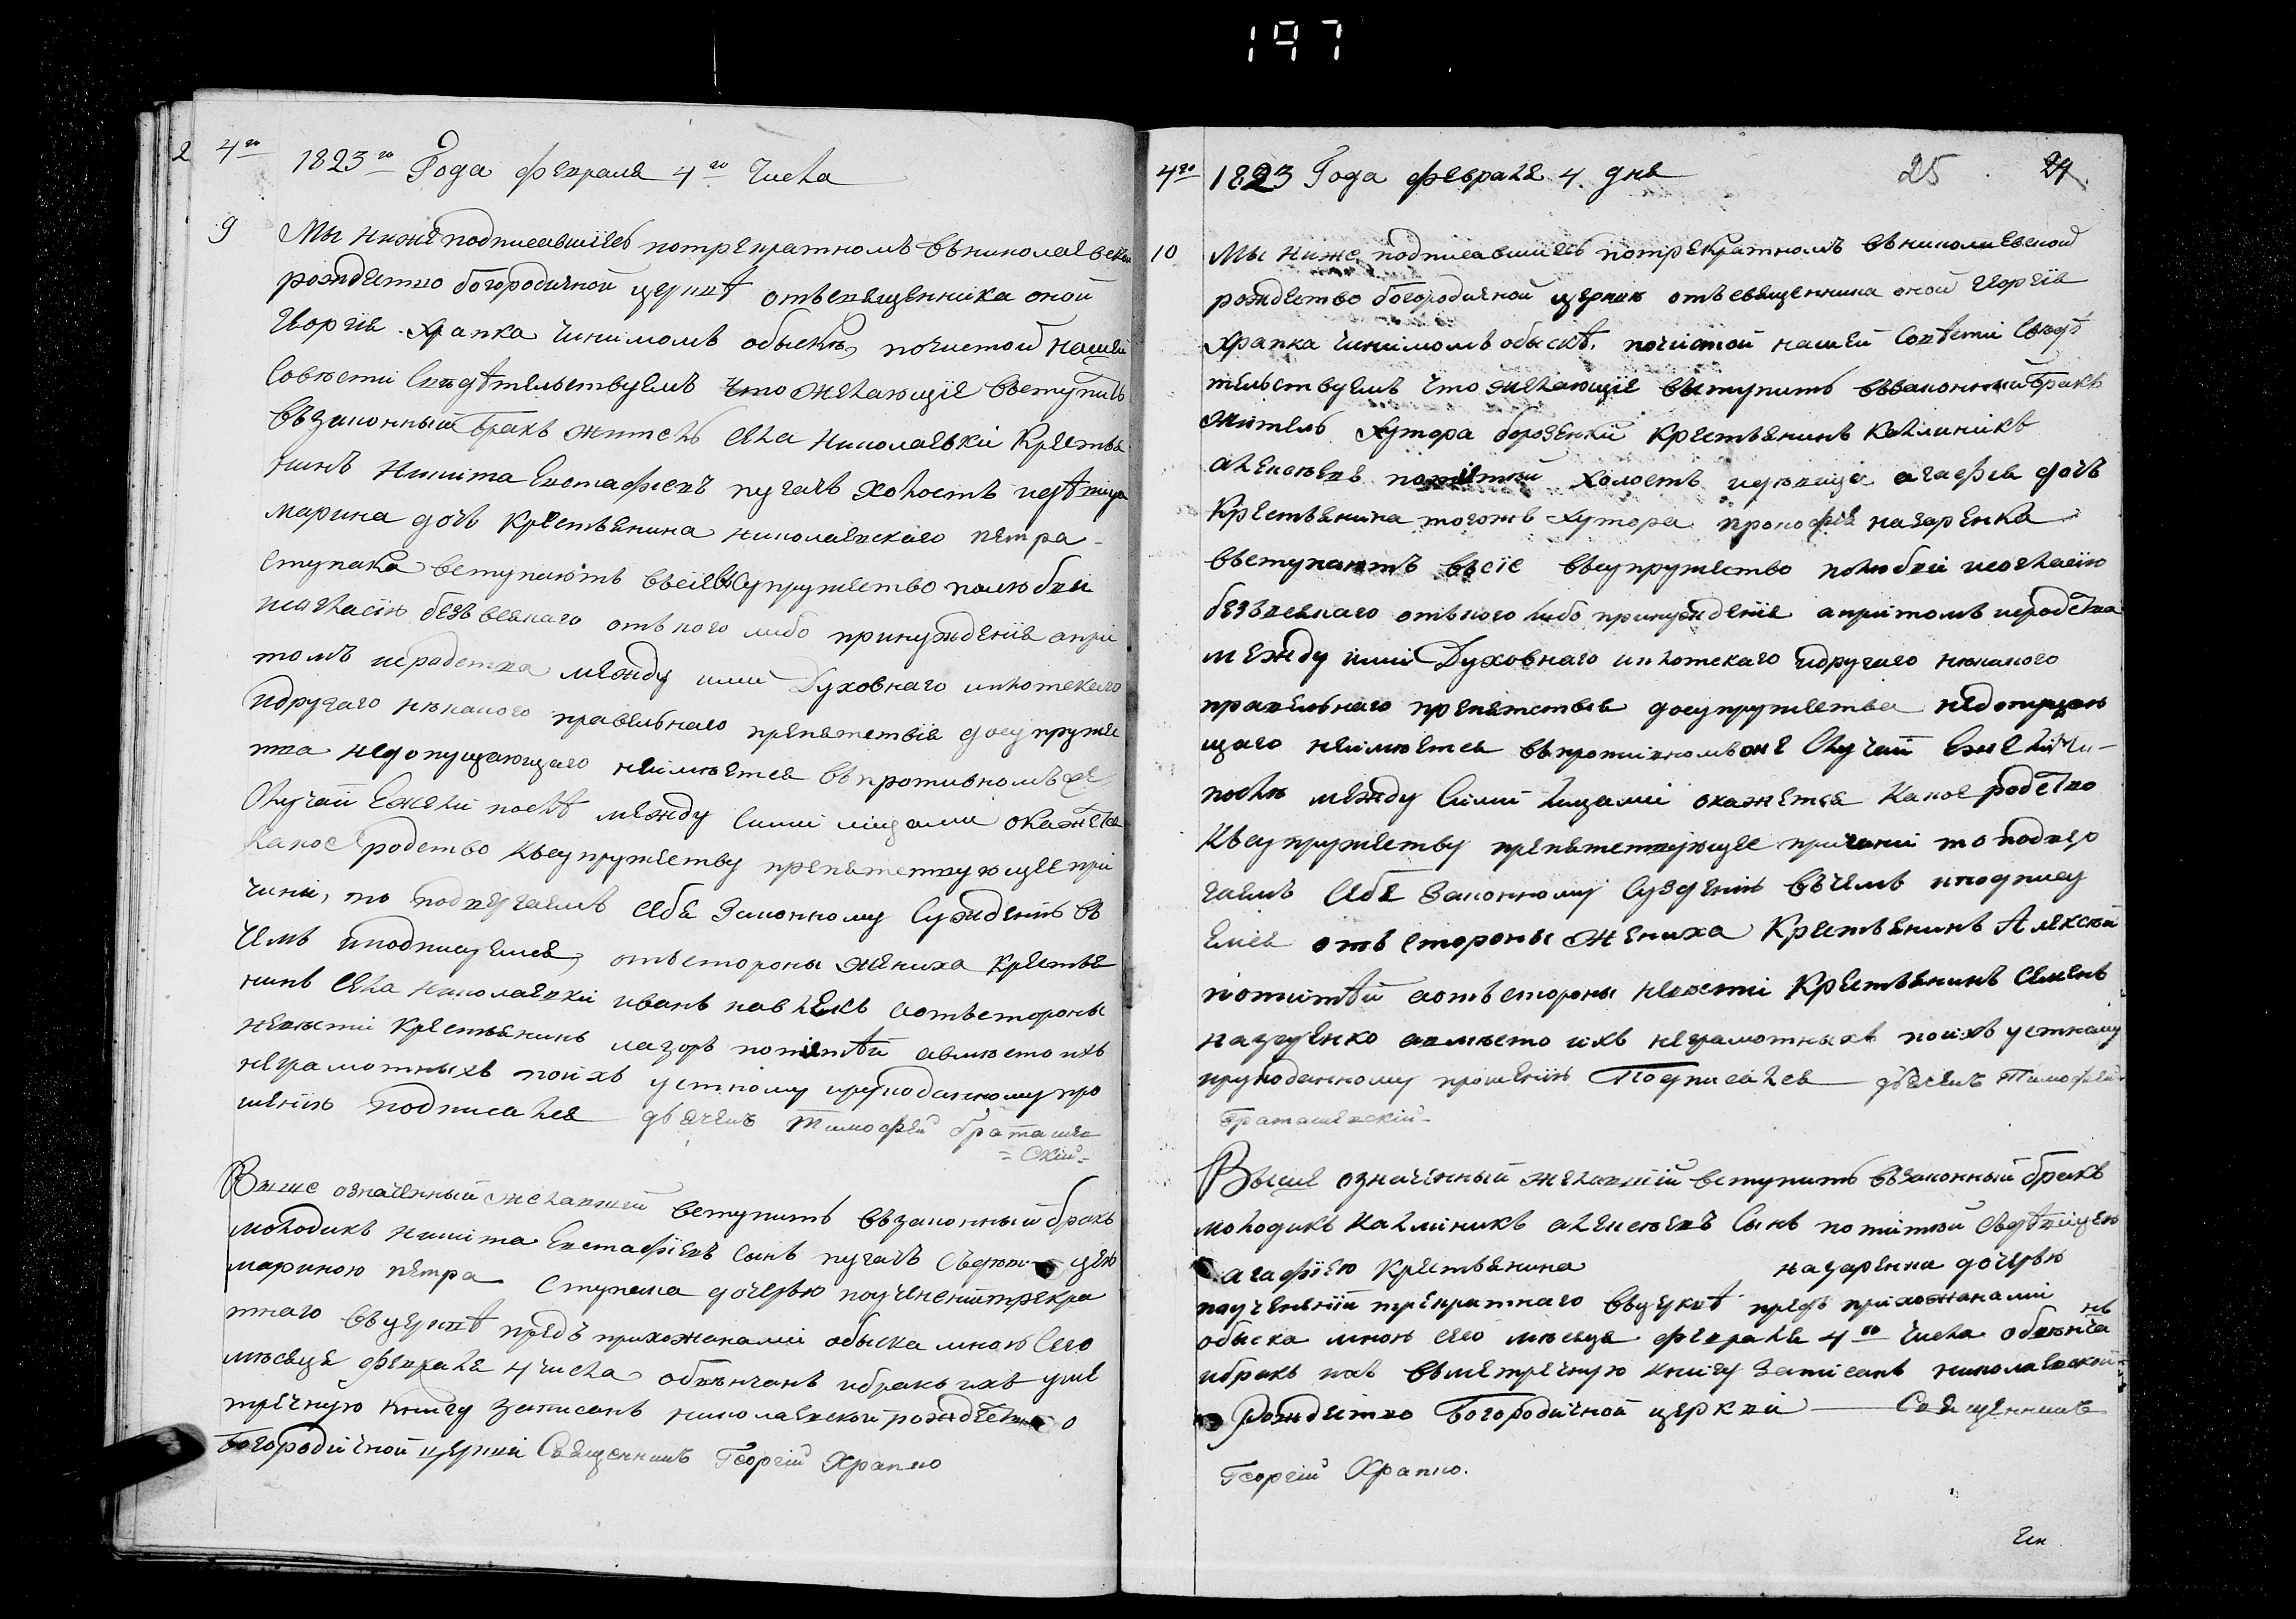 197
2 4го 1823го Года февраля 4го числа
9 Мы ниже подписавшіесь потрекратномъ въ николаевской
рождество богородичной церквѣ отъ священника оной
Георгія Храпка чинимомъ обыскѣ, по чистой нашей
Совѣсти Свидѣтельствуемъ что желающіе въступить
въ законный бракъ житель села Николаевки Крестья
нинъ Никита Евстафіевъ пугачъ холостъ и дѣвица
марина дочь Крестьянина николаевского петра
ступака вступаютъ въ сіе Супружество по любви
и согласію безъ всякаго отъ кого либо принужденія а при
томъ и родства между ими Духовнаго и плотскаго
и другаго нѣкакого правельнаго препятствія до супруже
тва недопущающаго неимѣется въ противномъ же
Случаѣ Ежели послѣ между сими лицами окажется
Какое родство къ супружеству препятствующее при
чини, то подвергаемъ себя Законному Сужденію въ
чемъ и подписуемся, отъ стороны жениха крестья
нинъ села николаевки иванъ павленко а отъ стороны
невѣсти крестьянинъ лазоръ а вмѣсто ихъ
неграмотныхъ по ихъ устному и рукоданному про
шенію подписался дьячекъ Тимофей браташев
=скій=
Више означенный желавшей вступить въ законный бракъ
молодикъ никита Евстафіевъ сынъ пугачъ Съ дѣвицею
мариною петра Ступака дочерью по учененій трекра
тнаго въ церквѣ предъ прихожанами обыска мною сего
мѣсяца февраля 4 числа обвѣнчанъ и бракъ ихъ у ме
тречную книгу записанъ николаевской рождество
Богородичной церкви Священникъ Георгій Храпко
4го 1823 Года февраля 4. дня 25 24
10 Мы ниже подписавшіесь потрекратномъ въ николаевской
рождество богородичной церквѣ отъ священника оной Георгія
Храпка чинимомъ обыскѣ. по чистой нашей Совѣсти Свидѣ
тельствуемъ что желающіе въступить въ законный бракъ
житель хутора борозенки Крестьянинъ Калиникъ
алексѣевъ холостъ и дѣвица агафія дочь
Крестьянина того жъ хутора прокофія назаренка
въступаютъ въ сіе въ супружество по любви и согласію
безъ всякаго отъ кого либо принужденія а притомъ и родства
между ими Духовнаго и плотскаго и другаго нѣкакого
правельнаго препятствія до супружества недопущаю
щаго неимѣется въ противномъ же Случаѣ Ежели
послѣ между сими лицами окажется Какое родство
къ супружеству препятствующее причини то подвер
гаемъ себя Законному Сузденію въ чемъ и подпису
емся отъ стороны жениха Крестьянинъ Алексѣй
а отъ стороны невѣсти Крестьянинъ семенъ
назаренко а вмѣсто ихъ неграмотныхъ по ихъ устному
и рукоданному прошенію Подписался дьячекъ Тимофей
Браташевскій
Выше означенный желавшій вступить въ законный бракъ
молодикъ Калиникъ алексѣевъ Сынъ Съ дѣвицею
агафіею Крестьянина назаренка дочерью
по учененій трекратнаго въ церквѣ предъ прихожанами
обыска мною сего мѣсяца февраля 4го числа обвѣнчанъ
и бракъ ихъ въ метречную книгу записанъ николаевской
Рождество Богородичной церкви Священникъ
Георгій Храпко.